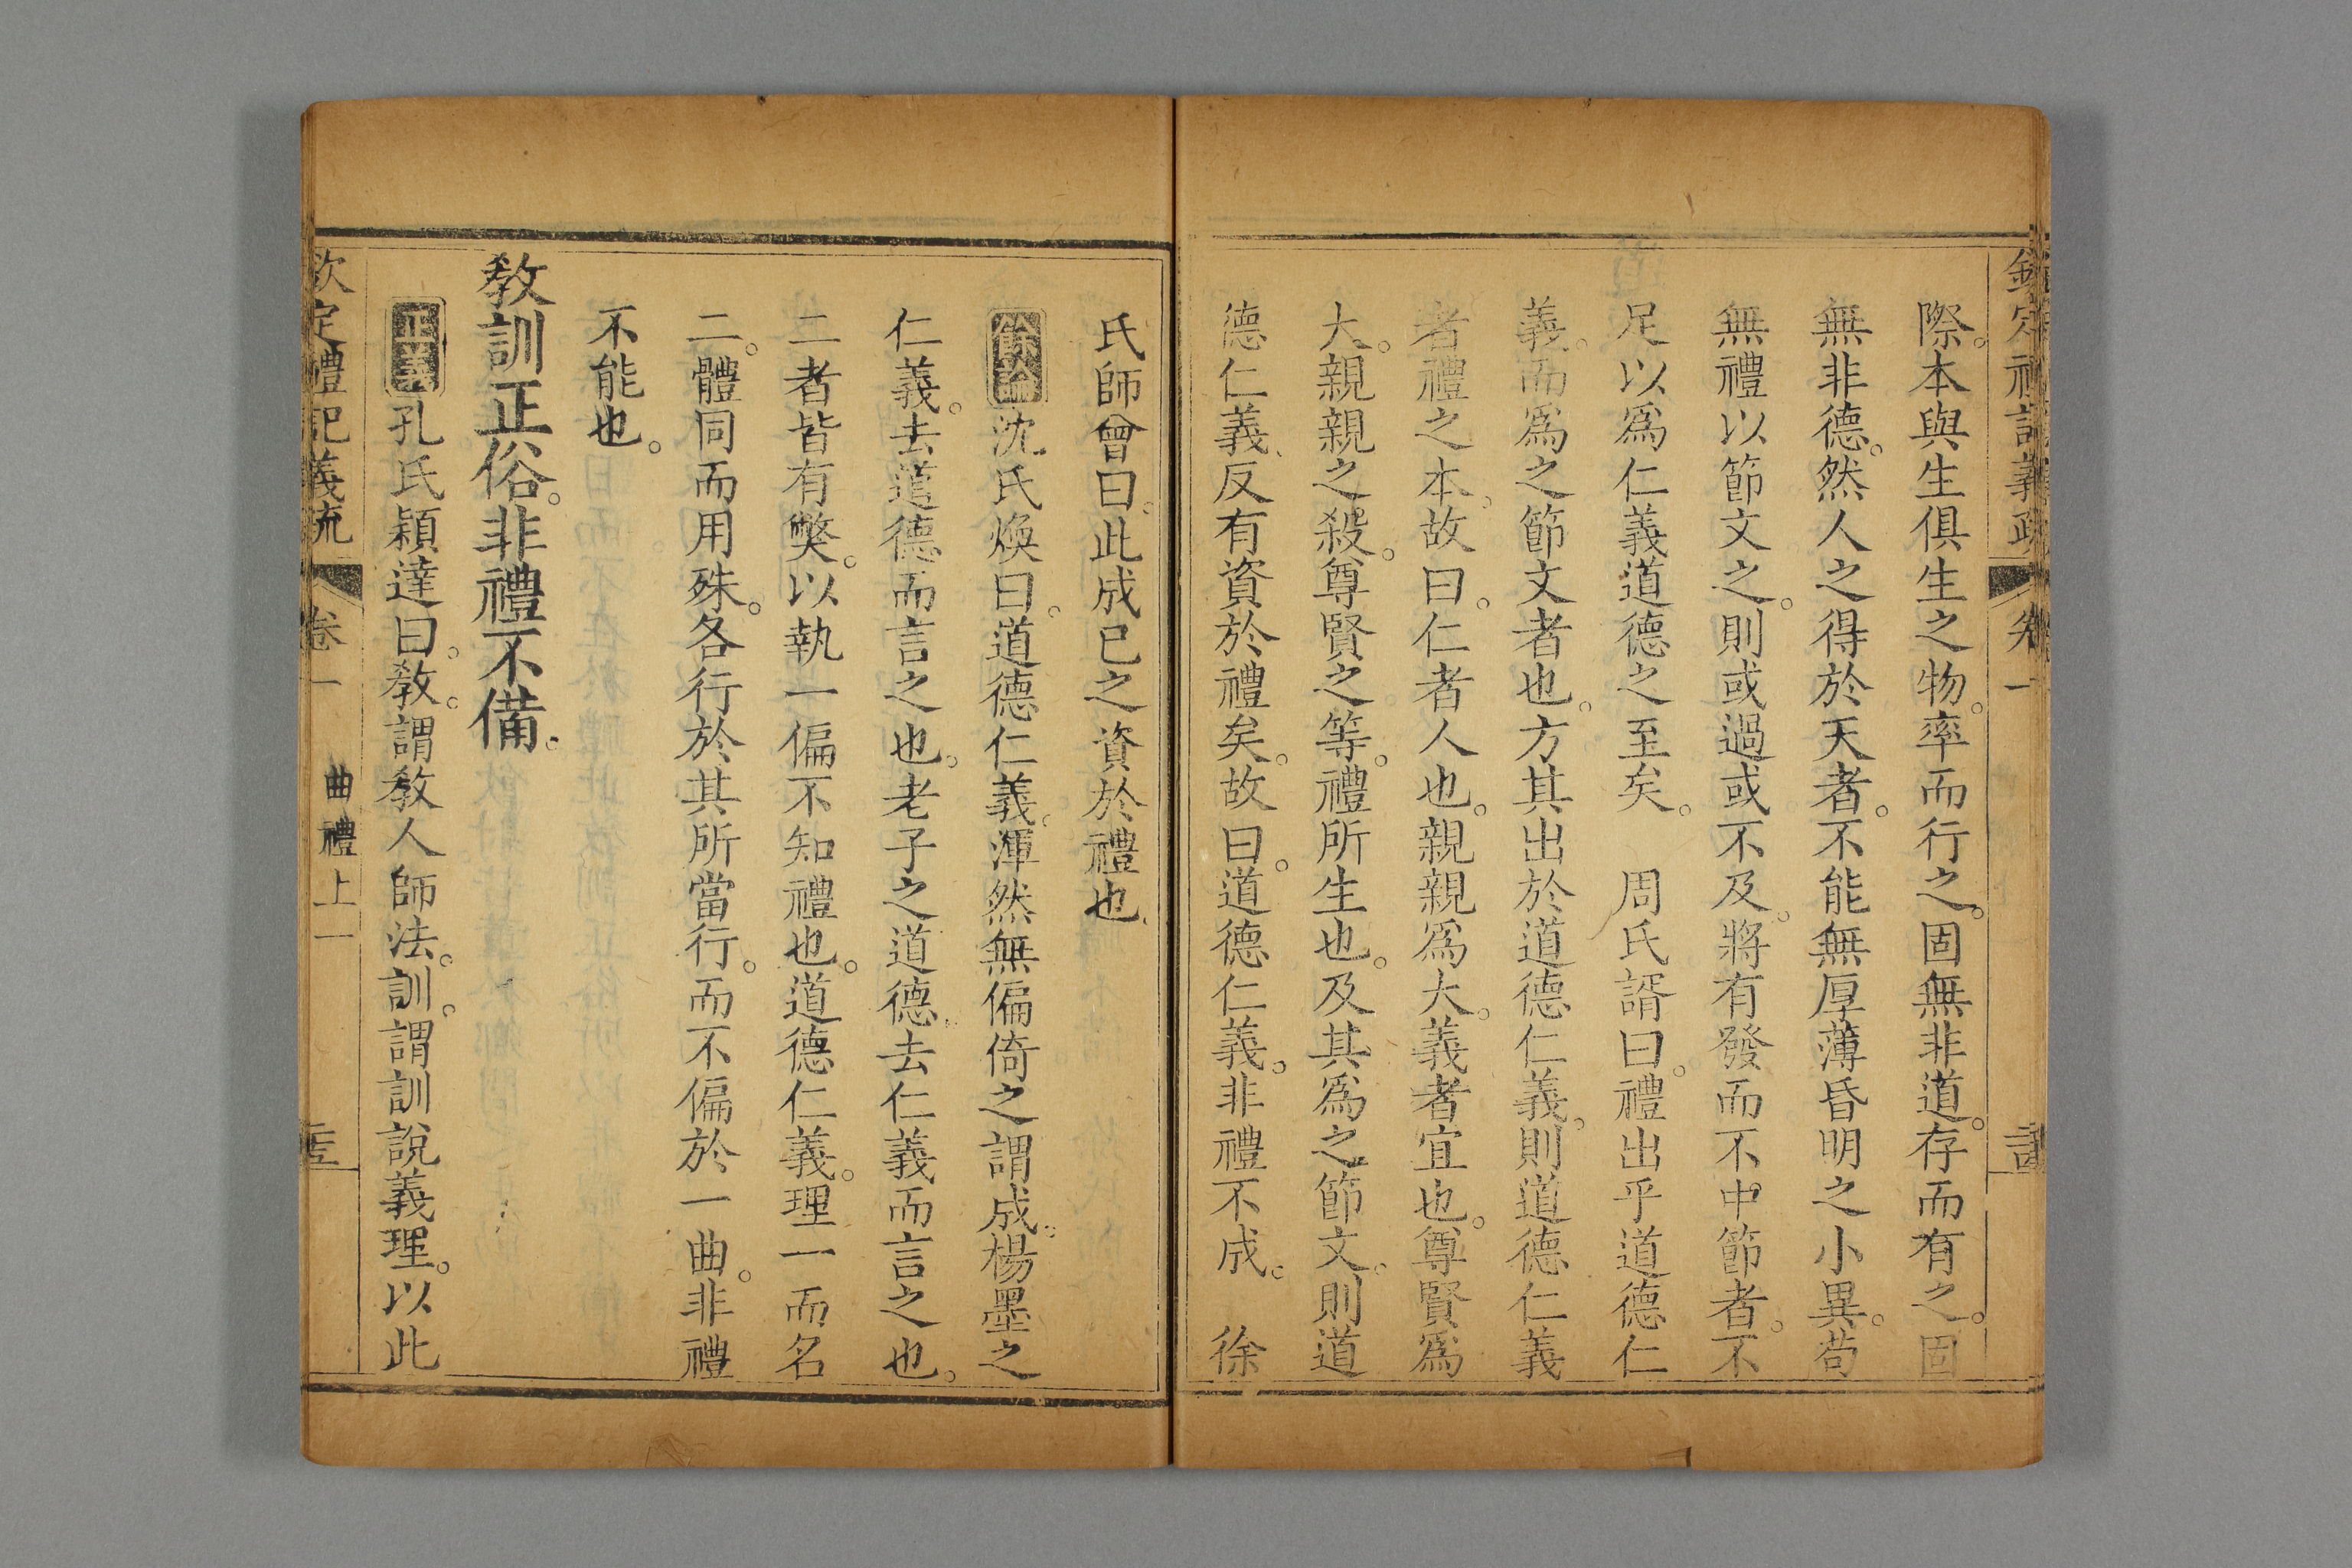 欽定禮記義疏 卷一
際。本與生俱生之物。率而行之。固無非道。存而有之。固
無非德。然人之得於天者。不能無厚薄昏明之小異。苟
無禮以節文之。則或過或不及。將有發而不中節者。不
足以爲仁義道德之至矣。　周氏諝曰。禮出乎道德仁
義。而爲之節文者也。方其出於道德仁義。則道德仁義
者禮之本。故曰。仁者人也。親親爲大。義者宜也。尊賢爲
大。親親之殺。尊賢之等。禮所生也。及其爲之節文。則道
德仁義。反有資於禮矣。故曰。道德仁義。非禮不成。　徐
氏師曾曰。此成已之資於禮也。
餘論沈氏煥曰。道德仁義。渾然無偏倚之謂成。楊墨之
仁義。去道德而言之也。老子之道德。去仁義而言之也。
二者皆有獘。以執一偏不知禮也。道德仁義。理一而名
二。體同而用殊。各行於其所當行。而不偏於一曲。非禮
不能也。
教訓正俗。非禮不備。
正義孔氏穎達曰。教。謂教人師法。訓。謂訓說義理。以此
欽定禮記義疏 卷一 曲禮上一